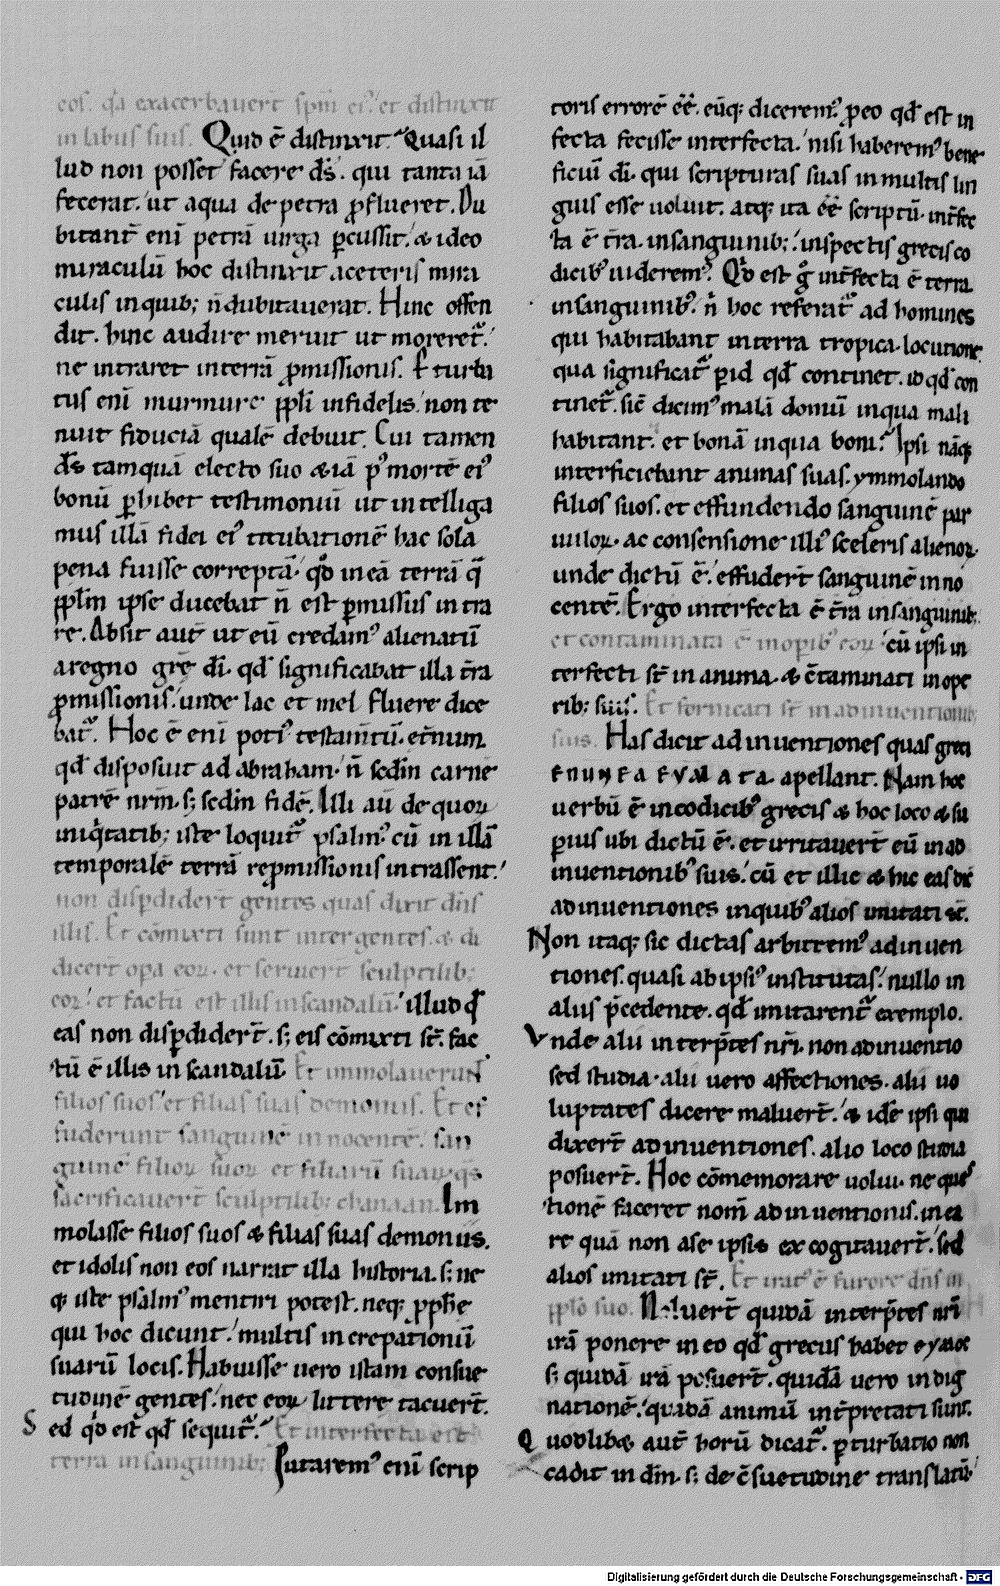 eos. q̄a exacerbauer̄t sp̄m ei᷒. et distinxit
in labiis suis. Quid ē distinxit. Quasi il
lud non posset facere d̄s. qui tanta iā
fecerat. ut aqua de petra ꝓflueret. Du
bitant̄ enī petrā uirga ꝑcussit. & ideo
miraculū hoc distinxit a ceteris mira
culis in quib; n̄ dubitauerat. Hinc offen
dit. hinc audire meruit ut moreret᷑.
ne intraret in terrā ꝓmissionis. E turba
tus enī murmure ppl̄i infidelis. non te
nuit fiduciā qualē debuit. Cui tamen
d̄s tamquā electo suo & iā p᷒ mortē ei᷒
bonū ꝑhibet testimoniū ut intelliga
mus illā fidei ei᷒ titubationē hac sola
pena fuisse correptā. qd̄ in eā terrā q̄
ppl̄m ipse ducebat n̄ est ꝑmissus intra
re. Absit aut̄ ut eū credam᷒ alienatū
a regno grē dī. qd̄ significabat illa t̄ra
ꝓmissionis. unde lac et mel fluere dice
bat᷑. Hoc ē enī poti᷒ testam̄tū et̄num.
qd̄ disposuit ad abraham. n̄ sc̄din carnē
patrē nr̄m. s; sc̄din fidē. Illi au̅ de quoꝝ
iniq̇tatib; iste loquit᷑ psalm᷒ cū in illā
temporalē terrā repmissionis intrassent.
non disꝑdider̄t gentes quas dixit dn̄s
illis. Et cōmixti sunt inter gentes. & di
dicer̄t opa eoꝝ. et seruier̄t sculptilib;
eoꝝ. et factū est illis in scandalū. illud q̄
eas non disꝑdider̄t. s; eis cōmixti st̄. fac
tū ē illis in scandalū Et immolauerunt
filios suos. et filias suas demoniis. Et ef
fuderunt sanguinē innocentē. san
guinē filioꝝ suoꝝ et filiarū suaꝝ q̄s
sacrificauer̄t sculptilib; chanaan. Im
molasse filios suos & filias suas demoniis.
et idolis non eos narrat illa historia. s; ne
q; iste psalm᷒ mentiri potest. neq; ꝓph̄e
qui hoc dicunt. multis increpationū
suarū locis. Habuisse uero istam consue
tudinē gentes. nec eoꝝ littere tacuer̄t.
Sed qd̄ est qd̄ sequit᷑. Et interfecta est
terra in sanguinib; Putarem᷒ enī scrip
toris errorē eē̄. eūq; dicerem᷒. ꝓ eo qd̄ est in
fecta fecisse interfecta. nisi haberem᷒ bene
ficiū dī. qui scripturas suas in multis lin
guis esse uoluit. atq; ita eē̄ scriptū. int̄fec
ta ē t̄ra. in sanguinib; inspectis grecis co
dicib᷒ uiderem᷒. Qd̄ est ḡ int̄fecta ē terra
in sanguinib᷒. n̄ hoc referat᷑ ad homines
qui habitabant in terra tropica locutione.
qua significat᷑ ꝑ id qd̄ continet. id qd̄ con
tinet᷑. sic̄ dicim᷒ malā domū in qua mali
habitant. et bonā in qua boni. Ipsi nāq;
interficiebant animas suas. ymmolando
filios suos. et effundendo sanguinē par
uuloꝝ. ac consensione illi᷒ sceleris alienoꝝ.
unde dictū ē. effuder̄t sanguinē inno
centē. Ergo interfecta ē t̄ra in sanguinib;
et contaminata ē in opib᷒ eoꝝ. cū ipsi in
terfecti st̄ in anima. & c̄taminati in ope
rib; suis. Et fornicati st̄ in adinuentionib;
suis. Has dicit adinuentiones quas greci
apellant. Nam hoc
uerbū ē in codicib᷒ grecis & hoc loco & su
ꝑius ubi dictū ē. et irritauer̄t eū in ad
inuentionib᷒ suis. cū et illic & hic eas dic̄
adinuentiones in quib᷒ alios imitati st̄.
Non itaq; sic dictas arbitrem᷒ adinuen
tiones. quasi ab ipsi᷒ institutas. nullo in
alius p̄cedente. qd̄ imitarent᷑ exemplo.
Vnde alii int̄erp̄tes nr̄i. non adinuentio
sed studia. alii uero affectiones. alii uo
luptates dicere maluer̄t. & idē ipsi qui
dixer̄t adinuentiones. alio loco studia
posuer̄t. Hoc cōmemorare uolui. ne ques
tionē faceret nom̄ adinuentionis. in ea
re quā non a se ipsis excogitauer̄t. sed
alios imitati st̄. Et irat᷒ ē furore dn̄s in
ppl̄o suo. Noluer̄t quidā interp̄tes nr̄i
irā ponere in eo qd̄ grecus habet
s; quidā irā posuer̄t. quidā uero indig
nationē. quidā animū int̄pretati sunt.
Quodlib& aut̄ horū dicat᷑. ꝑturbatio non
cadit in dm̄. s; de c̄suetudine translatū.
Digitalisierung gefördert durch die Deutsche Forschungsgemeinschaft - DFG